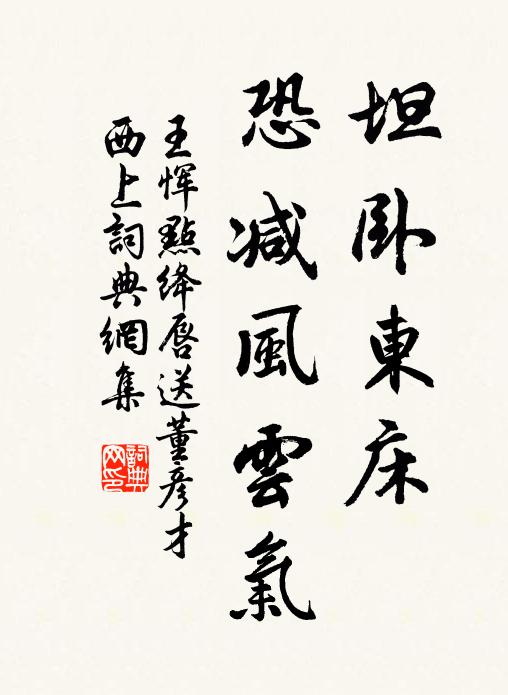 坦卧東床
恐减風雲氣
王惲點絳唇送董彦才
西上詞典網集
詞典网印